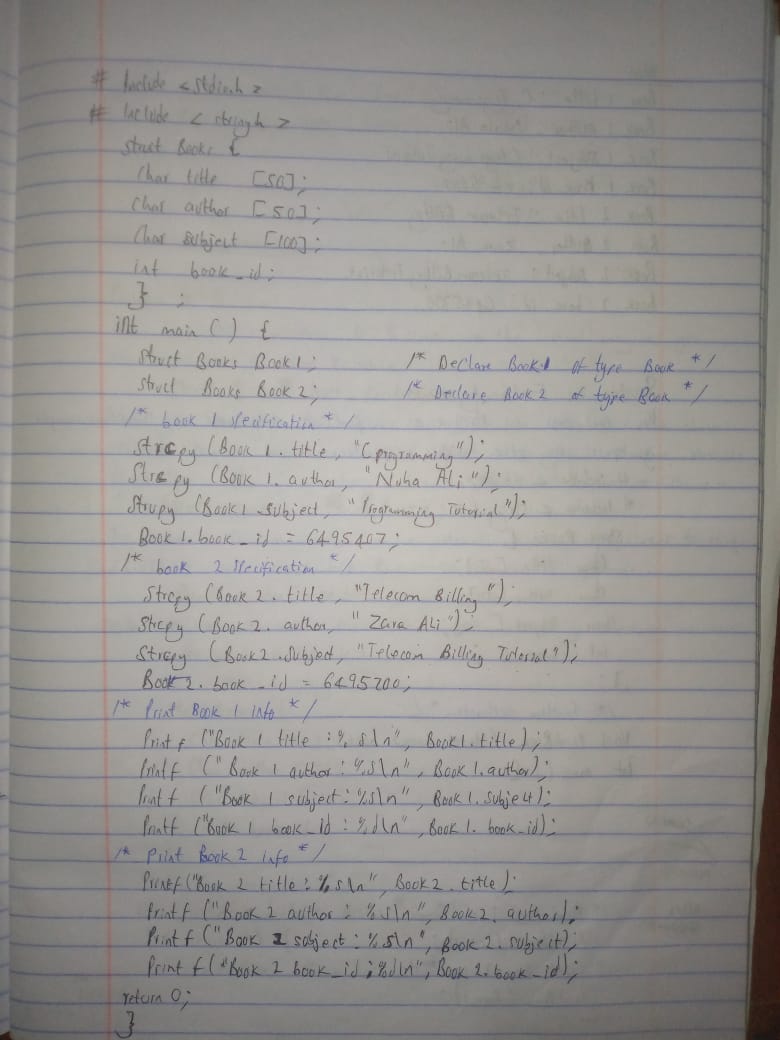 # Include <stdio.h>
# Include < string.h >
struct Books {
Char title [50];
Char author [50];
Char subject [100];
int book_id;
} ;
int main () {
Struct Books Book 1; /* Declare Book 1 of type Book */
Struct Books Book 2; /* Declare Book 2 of type Book */
/* book 1 specification */
Strcpy (Book 1. title, "C programming");
Strcpy (Book 1. author, "Nuha Ali");
Strcpy (Book 1 .subject, "Programming Tutorial");
Book 1. book_id = 6495407;
/* book 2 specification */
Strcpy (Book 2. title, "Telecom Billing");
Strcpy (Book 2. author, "Zara Ali");
Strcpy (Book 2 .Subject, "Telecom Billing Tutorial");
Book 2. book_id = 6495700;
/* Print Book 1 info */
Print f ("Book 1 title : %s\n", Book1. title);
Printf ("Book 1 author : %s\n", Book 1. author);
Print f ("Book 1 subject : %s\n", Book 1. Subject);
Printf ("Book 1 book_id : %d\n", Book 1. book_id);
/* Print Book 2 info */
Printf ("Book 2 title : %s\n", Book 2. title);
Print f ("Book 2 author : %s\n", Book 2. author);
Print f ("Book 2 subject : %s\n", Book 2. subject);
Print f ("Book 2 book_id ; %d\n", Book 2. book_id);
return 0;
}